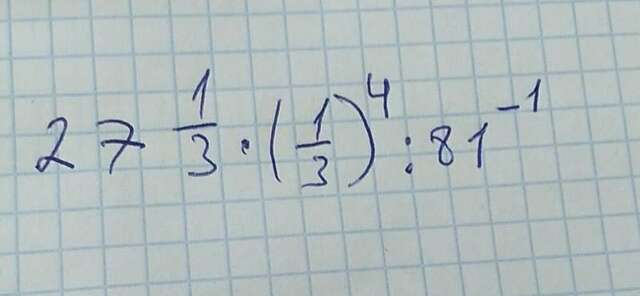 27^{\frac{1}{3}} \cdot \left(\frac{1}{3}\right)^4 : 81^{-1}